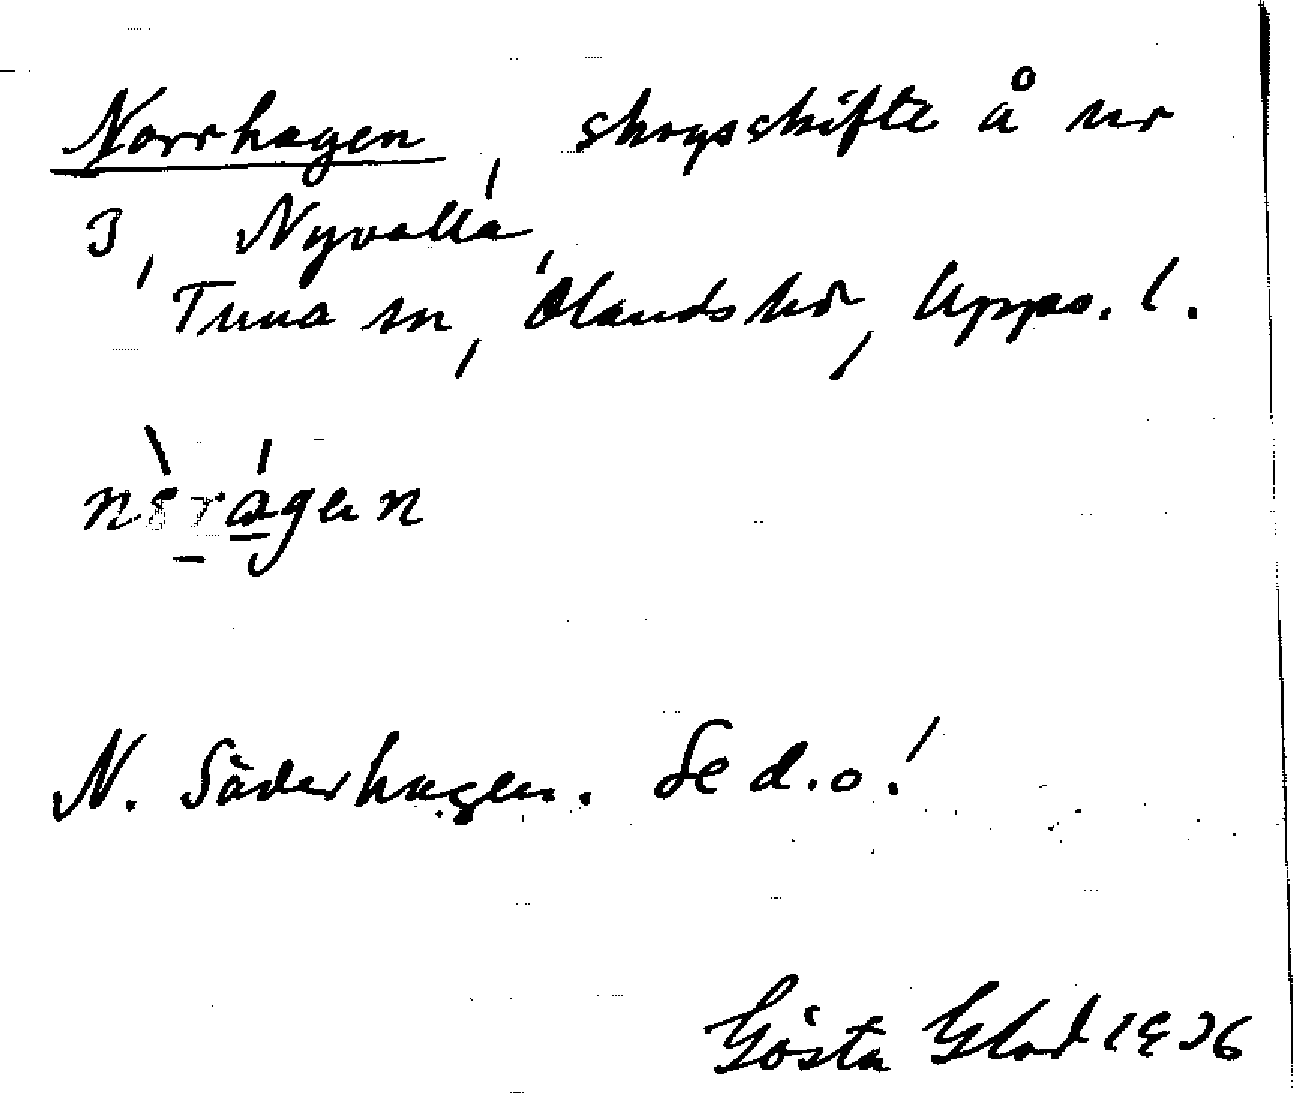 Norrhagen, skogsskifte å nr
3, Nyvalla,
Tuna sn, Olands hd, Upps. l.
N. Söderhagen. Se d.o.!
Gösta Glad 1936